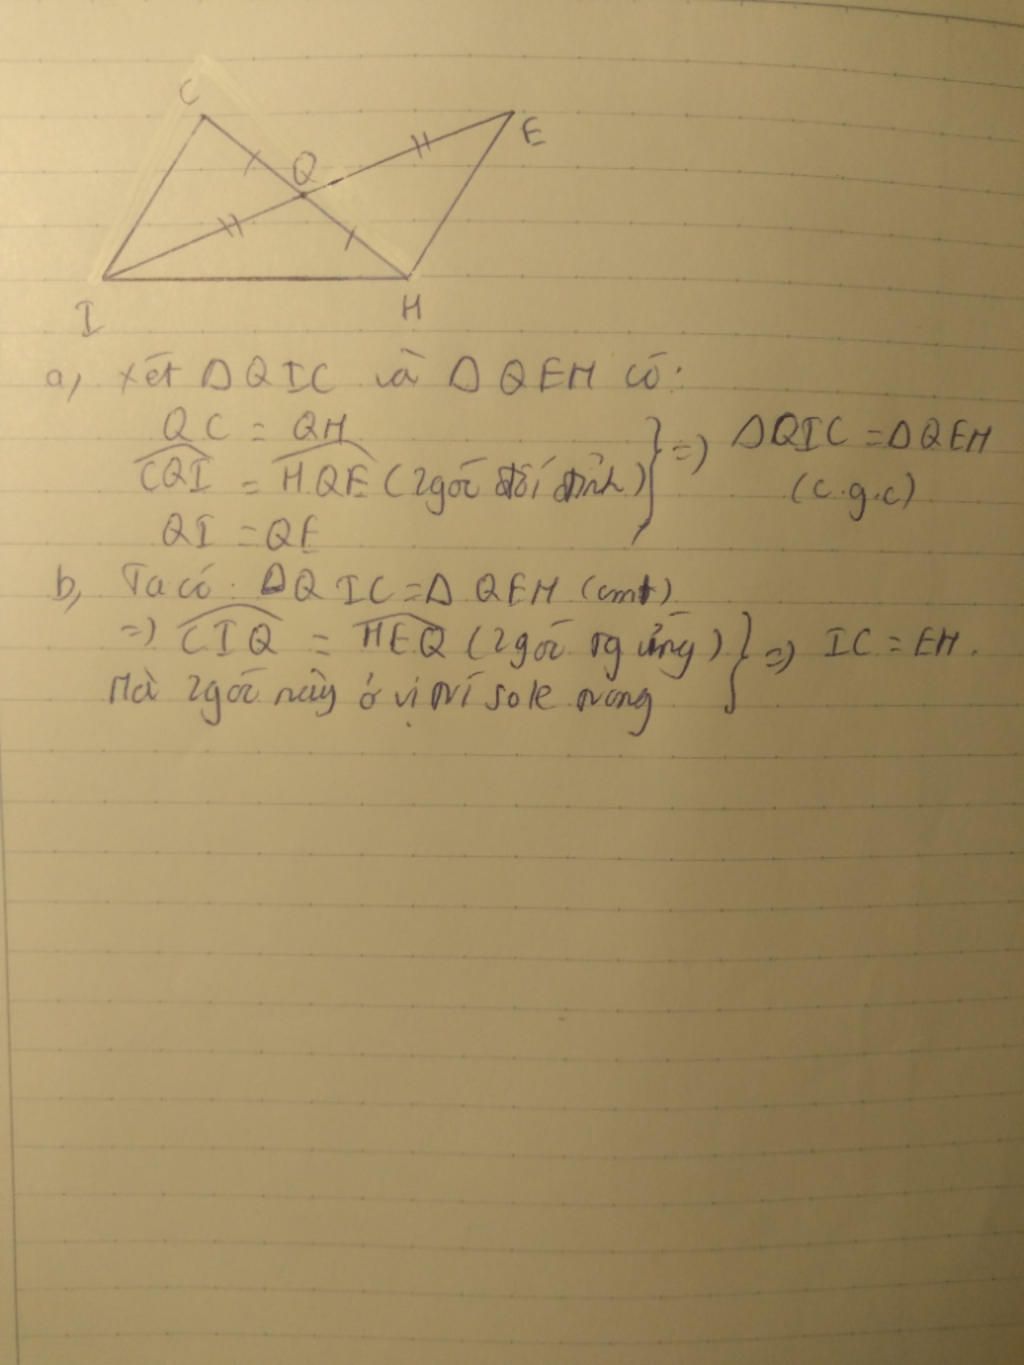 C
Q
E
I
H
a, Xét ΔQIC và ΔQEH có:
QC = QH
CQI = HQE (2góc đối đỉnh) } => ΔQIC = ΔQEH
(c.g.c)
QI = QE
b, Ta có: ΔQIC = ΔQEH (cmt)
=> CIQ = HEQ (2góc tg ứng) } => IC = EH.
Mà 2góc này ở vị trí sole trong